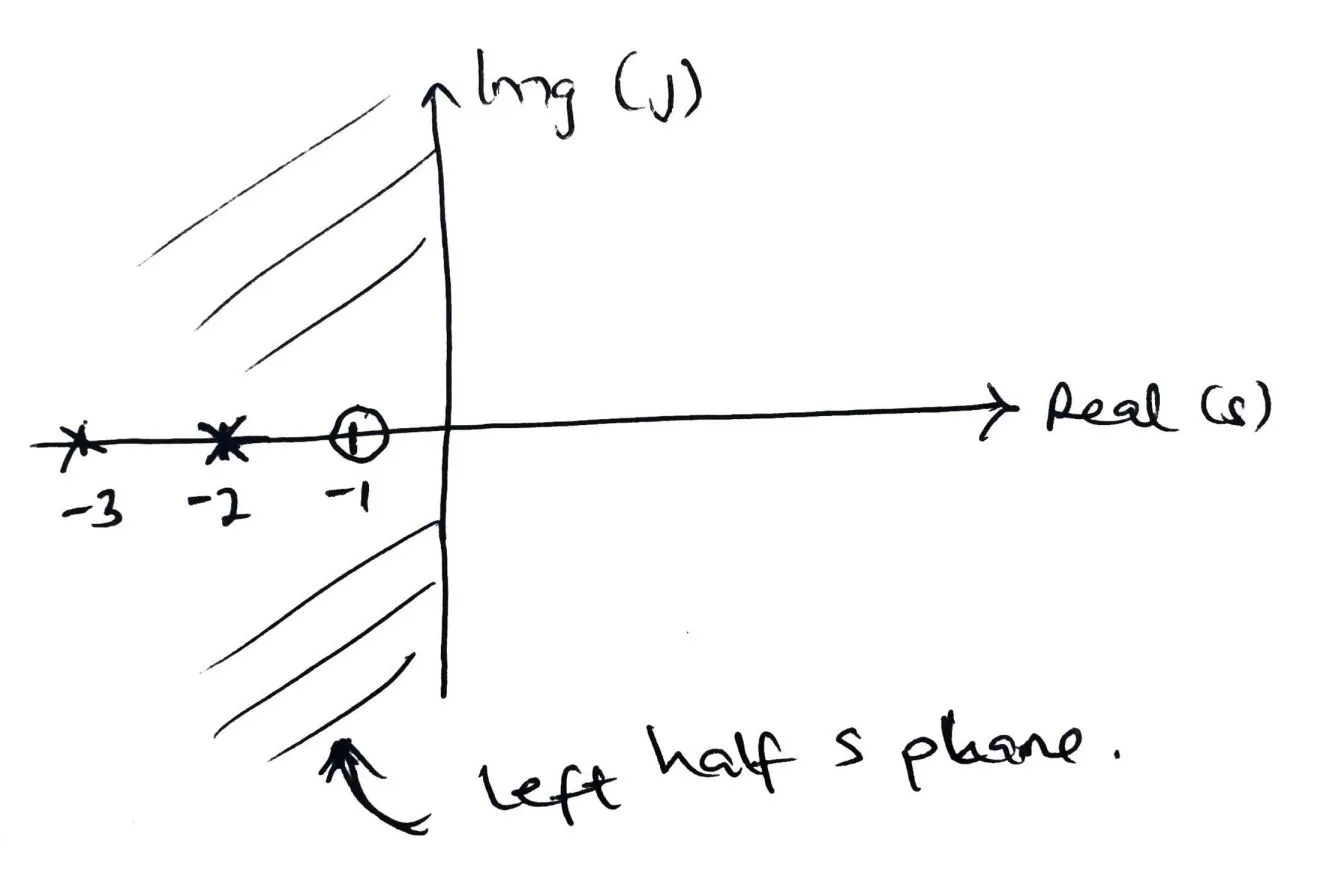 Img (j)
Real (s)
-3 -2 -1
left half s plane.